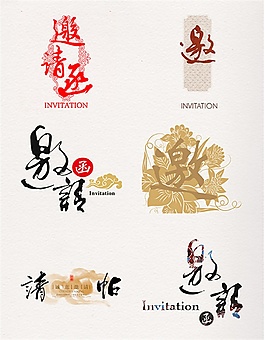 邀
请
函
INVITATION
邀
INVITATION
邀
請
函
Invitation
邀
請 帖
誠 邀 請
邀
請
函
Invitation